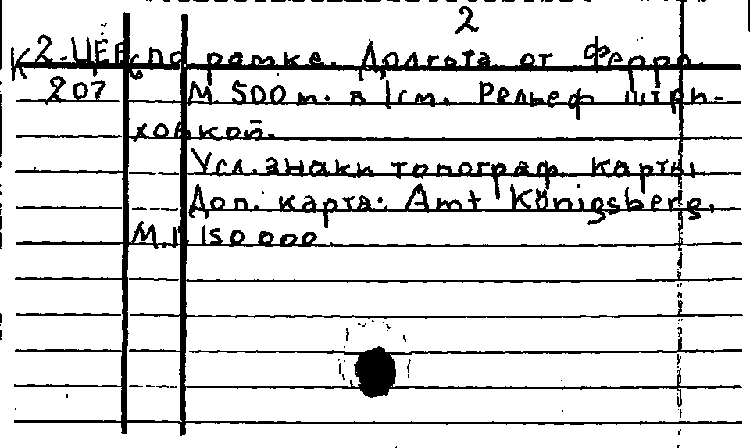 2
К2-ЦЕВ по рамке. Долгота от Ферро.
207 М. 500 м. в 1 см. Рельеф штри-
ховкой.
Усл. знаки топограф. карты
Доп. карта: Amt Königsberg.
М. 1:150 000